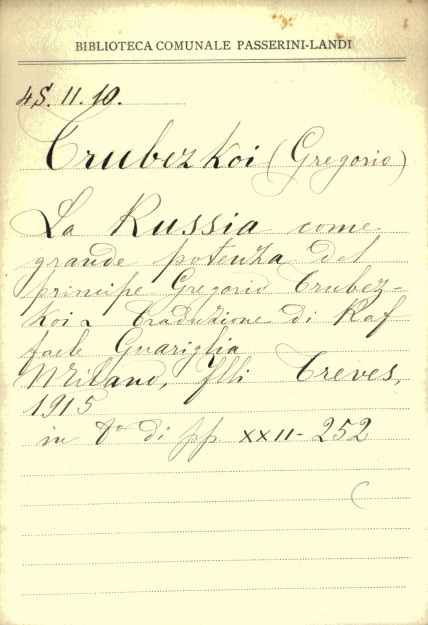 BIBLIOTECA COMUNALE PASSERINI-LANDI
4S. 11. 10.
Trubezkoi (Gregorio)
La Russia come
grande potenza del
principe Gregorio Trubez-
koi. Traduzione di Raf
faele Guariglia
Milano, flli Treves,
1915
in 8º di pp XXII-252